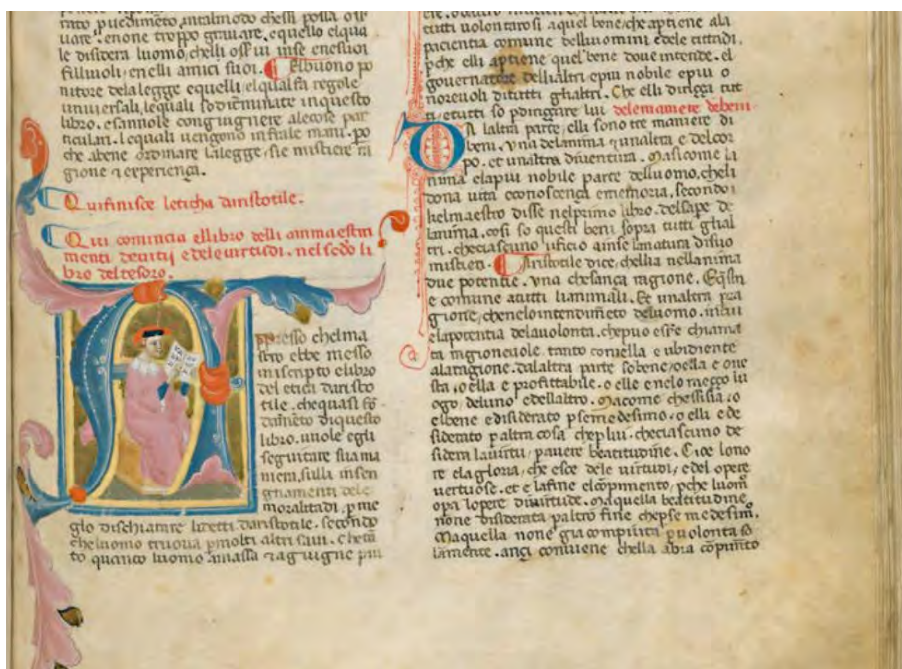 uare. enone troppo grauare. equello elqua
le disidera luomo, chelli oss ui inse enesuoi
filliuoli, enelli amici suoi. Elbuono po
nitore delalegge equelli elqual fa regole
uniuersali, lequali so diterminate inquesto
libro. esannole congiugnere alecose par
ticulari. lequali uengono infrale mani. po
che abene ordinare lalegge, sie mistiere ra
gione ⁊ experiença.
Qui finisce leticha daristotile.
Qui comincia ellibro delli ammaestra
menti deuitij edeleuirtudi. nel secodo li
bro del tesoro.
Appresso chelma
stro ebbe messo
inscripto elibro
del etica daristo
tile. chequasi fo
damento diquesto
libro. uuole egli
seguitare suama
niera, sulla insen
gnamenti dele
moralitadi, p me
glo dischiarire li detti daristotile. secondo
cheluomo truoua p molti altri saui. Cheta
to quanto luomo amassa ⁊ agiugne piu
tutti uolontarosi aquel bene, che aptiene ala
pacientia comune delli uomini edele cittadi.
pche elli aptiene quel bene doue intende. el
gouernatore dellialtri epiu nobile epiu o
noreuoli ditutti ghaltri. Che elli diriçça tut
ti, etutti so p diriçare lui delemaniere debeni
Da laltra parte, elli sono tre maniere di
beni. vna delanima ⁊ unaltra e delcor
po. et unaltra diuentura. Masicome la
nima elapiu nobile parte delluomo, cheli
dona uita econoscença ememoria, secondo i
kelmaestro disse nelprimo libro. delsape de
lanima. cosi so questi beni sopra tutti ghal
tri. checiascuno uficio ainse lanatura disuo
mistieri. Aristotile dice, chellia nellanima
due potentie. vna chesança ragione. Eqsta
e comune atutti lianimali. Et unaltra p ra
gione, chenelo intendimeto deluomo. incui
elapotentia delauolonta. chepuo esse chiama
ta ragioneuole tanto comella e ubidiente
alaragione. dalaltra parte sobene, oella e one
sta, o ella e profittabile. o elle enelo meço lu
ogo, deluno edellaltro. Macome chessisia, o
elbene edisiderato p semedesimo. o elli e de
siderato p altra cosa chep lui. checiascuno de
sidera lauirtu, p auere beatitudine. Cioe lono
re elagloria, che esce dele uirtudi, edel opere
uertuose. et e lafine elcopimento, pche luom
opa lopere diuirtude. Maquella beatitudine
none disiderata paltro fine chepse medesimo.
Maquella none gia compiuta p uolonta so
lamente. ançi conuiene chella abia copimto